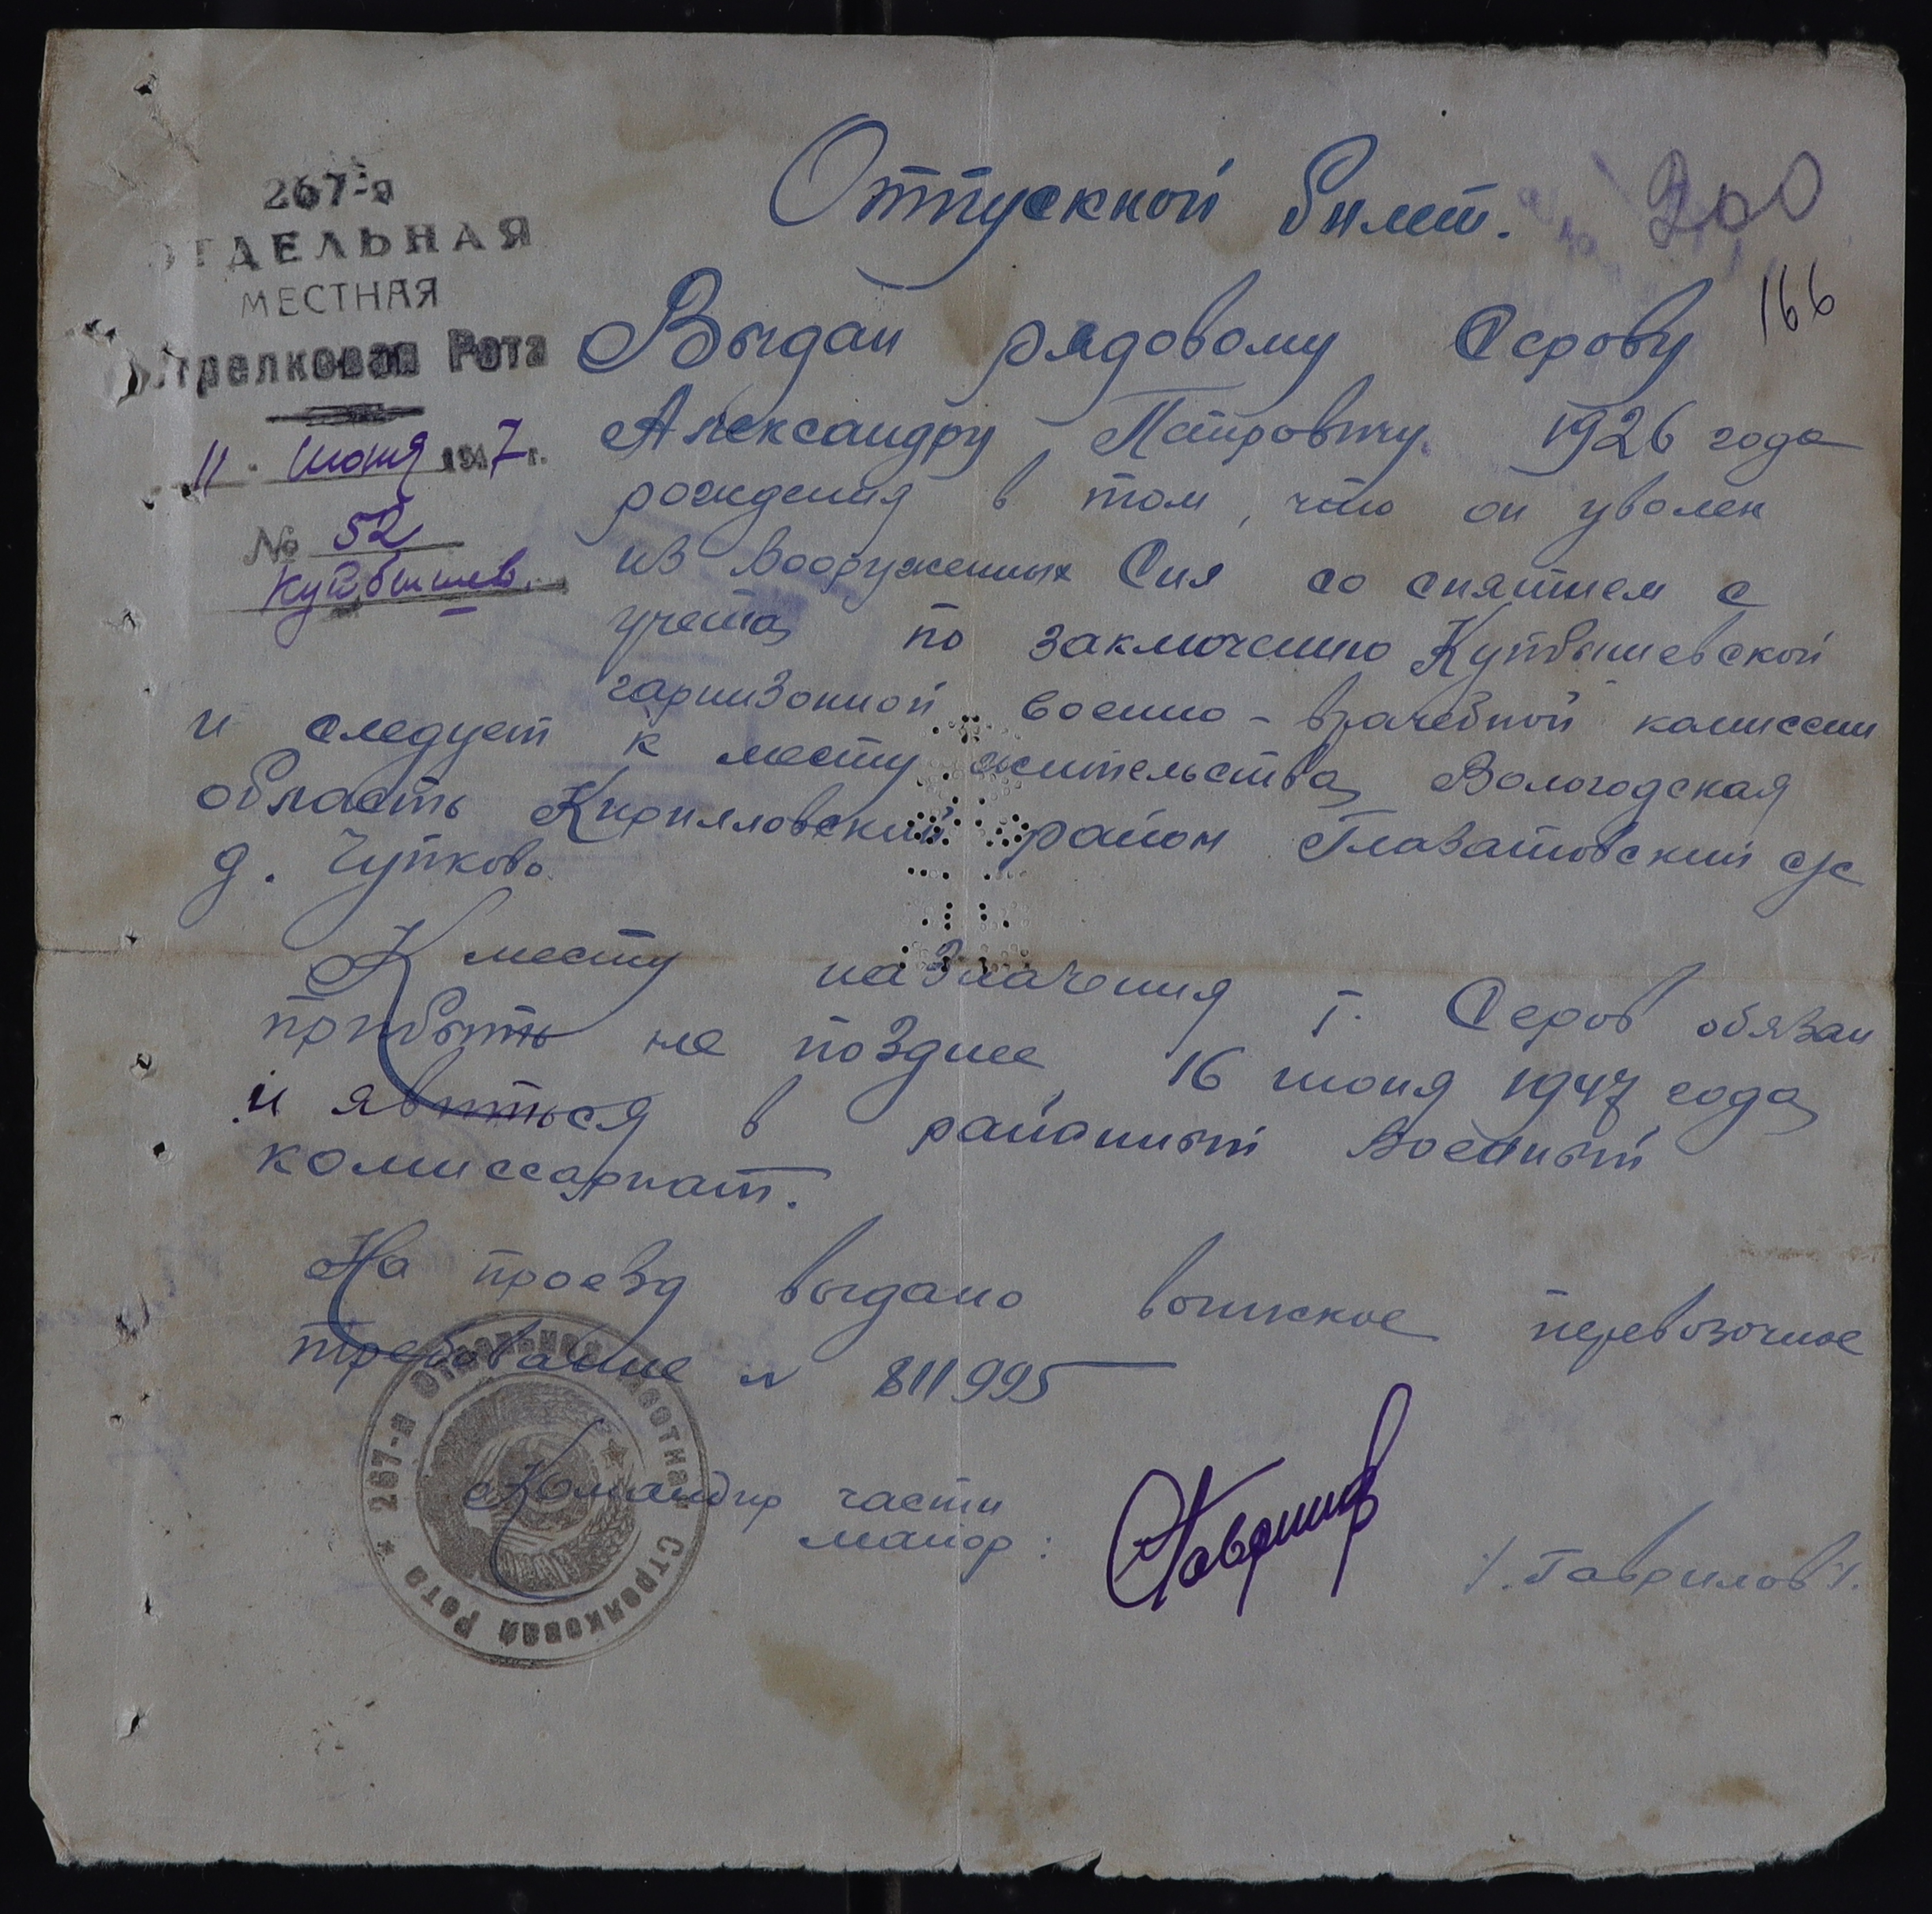 267-я
ОТДЕЛЬНАЯ
МЕСТНАЯ
Стрелковая Рота
11 июня 1947 г.
№ 52
Куйбышев.
Отпускной билет.
300
166
Выдан рядовому Серову
Александру Петровичу 1926 года
рождения в том, что он уволен
из Вооруженных Сил со снятием с
учета по заключению Куйбышевской
гарнизонной военно-врачебной комиссии
и следует к месту жительства Вологодская
область Кирилловский район с/с
д. Чупково.
К месту назначения т. Серов обязан
прибыть не позднее 16 июня 1947 года
и явиться в районный Военный
комиссариат.
На проезд выдано воинское перевозочное
требование N 811995
Командир части
майор:
/. Гаврилов /.
* 267-я Отдельная Местная Стрелковая Рота